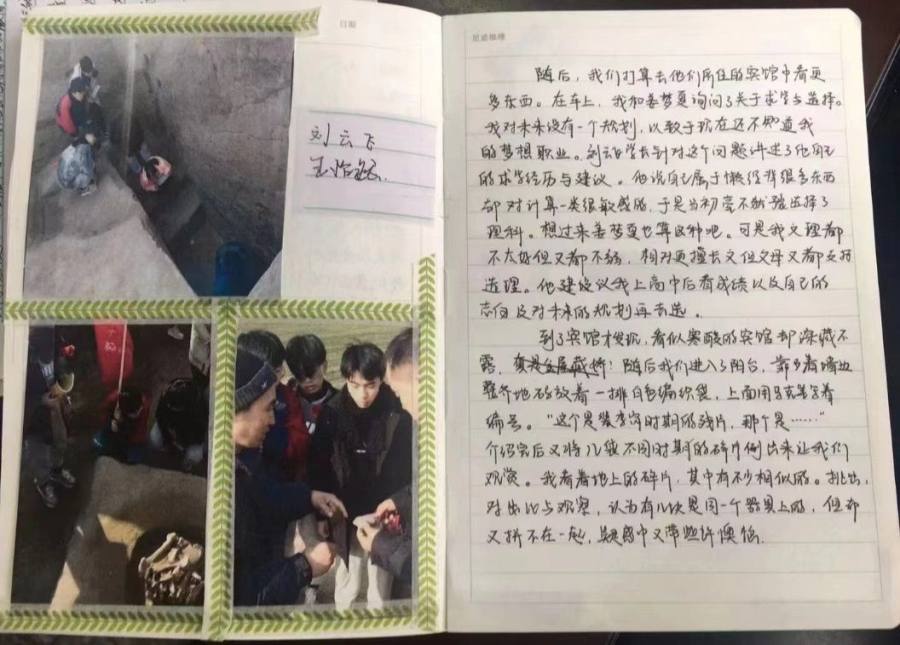 日期
刘云飞
足迹梳理
随后，我们打算去他们所住的宾馆中看更
多东西。在车上，我和姜梦夏询问了关于求学与选择。
我对未来没有一个规划，以致于现在还不知道我
的梦想职业。刘云飞学长针对这个问题讲述了他自己
的求学经历与建议。他说自己属于懒得背很多东西
却对计算一类很敏感的，于是当初毫不犹豫选择了
理科。想过来姜梦夏也算这种吧。可是我文理都
不太好但又都不弱，相对更擅长文但父母又都支持
选理。他建议我上高中后看成绩以及自己的
志向及对未来的规划再去选。
到了宾馆才发现，看似寒酸的宾馆却深藏不
露，随后我们进入了阳台，靠着墙边
整齐地码放着一排白色编织袋，上面用马克笔写着
编号。“这个是 时期的残片，那个是……”
介绍完后又将几袋不同时期的碎片倒出来让我们
观赏。我看着地上的碎片，其中有不少相似的。挑出，
对比与观察，认为有几块是同一个器具上的，但却
又拼不在一起，疑惑中又带些许懊恼。